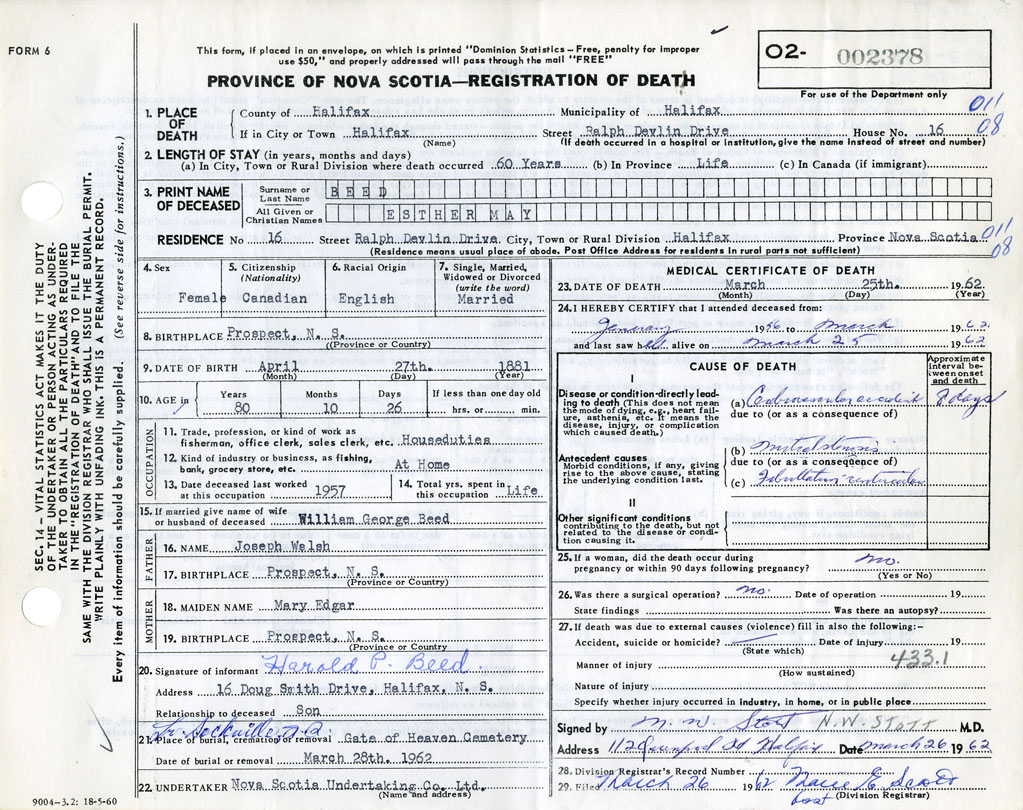 FORM 6
This form, if placed in an envelope, on which is printed "Dominion Statistics – Free, penalty for improper
use $50," and properly addressed will pass through the mail "FREE"
O2- 002378
PROVINCE OF NOVA SCOTIA—REGISTRATION OF DEATH
For use of the Department only
SEC. 14 – VITAL STATISTICS ACT MAKES IT THE DUTY
OF THE UNDERTAKER OR PERSON ACTING AS UNDER-
TAKER TO OBTAIN ALL THE PARTICULARS REQUIRED
IN THE "REGISTRATION OF DEATH" AND TO FILE THE
SAME WITH THE DIVISION REGISTRAR WHO SHALL ISSUE THE BURIAL PERMIT.
WRITE PLAINLY WITH UNFADING INK. THIS IS A PERMANENT RECORD.
Every item of information should be carefully supplied. (See reverse side for instructions.)
1. PLACE OF DEATH
County of Halifax Municipality of Halifax 011
If in City or Town Halifax Street Ralph Devlin Drive House No. 16 08
(Name) (If death occurred in a hospital or institution, give the name instead of street and number)
2. LENGTH OF STAY (in years, months and days)
(a) In City, Town or Rural Division where death occurred 60 Years (b) In Province Life (c) In Canada (if immigrant)
3. PRINT NAME OF DECEASED
Surname or Last Name BEED
All Given or Christian Names ESTHER MAY
RESIDENCE No 16 Street Ralph Devlin Drive City, Town or Rural Division Halifax Province Nova Scotia 011
(Residence means usual place of abode. Post Office Address for residents in rural parts not sufficient) 08
4. Sex Female
5. Citizenship (Nationality) Canadian
6. Racial Origin English
7. Single, Married, Widowed or Divorced (write the word) Married
8. BIRTHPLACE Prospect, N. S.
((Province or Country)
9. DATE OF BIRTH April 27th. 1881
(Month) (Day) (Year)
10. AGE in Years Months Days If less than one day old
80 10 26 hrs. or min.
OCCUPATION
11. Trade, profession, or kind of work as
fisherman, office clerk, sales clerk, etc. Houseduties
12. Kind of industry or business, as fishing,
bank, grocery store, etc. At Home
13. Date deceased last worked at this occupation 1957
14. Total yrs. spent in this occupation Life
15. If married give name of wife
or husband of deceased William George Beed
FATHER
16. NAME Joseph Walsh
17. BIRTHPLACE Prospect, N. S.
(Province or Country)
MOTHER
18. MAIDEN NAME Mary Edgar
19. BIRTHPLACE Prospect, N. S.
(Province or Country
20. Signature of informant Harold P. Beed
Address 16 Doug Smith Drive, Halifax, N. S.
Relationship to deceased Son
21. Place of burial, cremation or removal Gate of Heaven Cemetery
Date of burial or removal March 28th. 1962
22. UNDERTAKER Nova Scotia Undertaking Co. Ltd.
(Name and address)
9004–3.2: 18-5-60
MEDICAL CERTIFICATE OF DEATH
23. DATE OF DEATH March 25th. 1962
(Month) (Day) (Year)
24. I HEREBY CERTIFY that I attended deceased from:
January 1956 to March 1962
and last saw her alive on March 25 1962
CAUSE OF DEATH
Approximate interval between onset and death
I
Disease or condition directly lead-
ing to death (This does not mean
the mode of dying, e.g., heart fail-
ure, asthenia, etc. It means the
disease, injury, or complication
which caused death.)
(a) Cerebrovascular accident 8 days
due to (or as a consequence of)
Antecedent causes
Morbid conditions, if any, giving
rise to the above cause, stating
the underlying condition last.
(b) Mitral stenosis
due to (or as a consequence of)
(c) Fibrillation
II
Other significant conditions
contributing to the death, but not
related to the disease or condi-
tion causing it.
25. If a woman, did the death occur during
pregnancy or within 90 days following pregnancy? no.
(Yes or No)
26. Was there a surgical operation? no. Date of operation 19
State findings Was there an autopsy?
27. If death was due to external causes (violence) fill in also the following:–
Accident, suicide or homicide? Date of injury 19
(State which) 433.1
Manner of injury
(How sustained)
Nature of injury
Specify whether injury occurred in industry, in home, or in public place
Signed by N. W. Stott N.W. STOTT M.D.
Address 112 St Halifax Date March 26 1962
28. Division Registrar's Record Number
29. Filed March 26 1962 Marie E.
(Division Registrar)